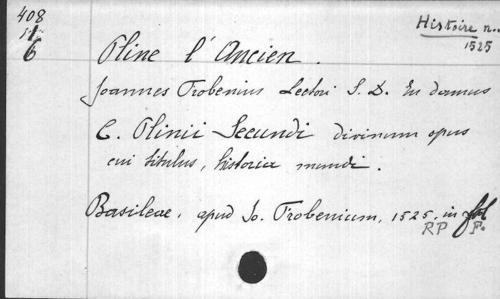 408
Histoire n..
1525
6
Pline l'Ancien.
Joannes Frobenius Lectori S. D. En damus
C. Plinii Secundi divinum opus
cui titulus, historia mundi.
Basileae, apud Jo. Frobenium, 1525, in fol
RP F.